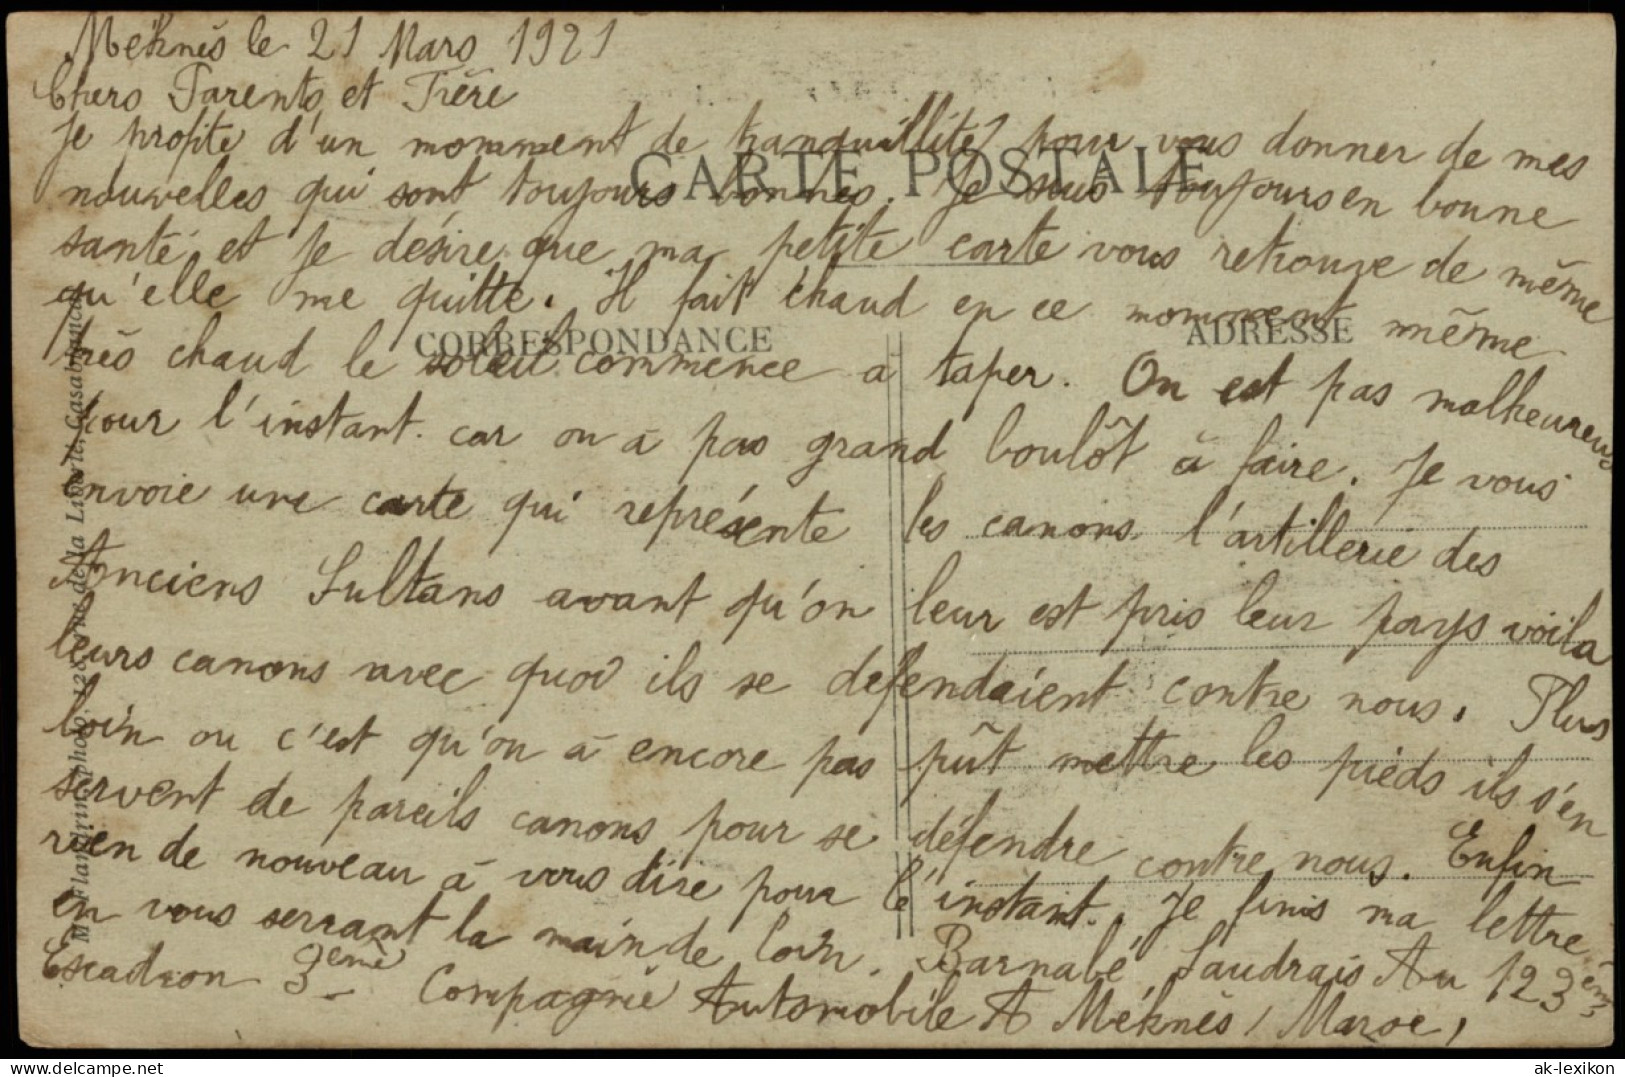 Méknès le 21 Mars 1921
Chers Parents et Frère
Je profite d'un momment de tranquillité pour vous donner de mes
CARTE POSTALE
nouvelles qui sont toujours bonnes. Je suis toujours en bonne
santé et je désire que ma petite carte vous retrouve de même
qu'elle me quitte. Il fait chaud en ce momment même
CORRESPONDANCE
ADRESSE
très chaud le soleil commence a taper. On est pas malheureus
pour l'instant. car on à pas grand boulôt à faire. Je vous
envoie une carte qui représente les canons. l'artillerie des
Anciens Sultans avant qu'on leur est pris leur pays voila
leurs canons avec quoi ils se défendaient contre nous. Plus
loin ou c'est qu'on à encore pas pût mettre les pieds ils s'en
servent de pareils canons pour se défendre contre nous. Enfin
rien de nouveau à vous dire pour l'instant. Je finis ma lettre
en vous serrant la main de loin. Barnabé Saudrais Au 123ème
Escadron 3ème Compagnie Automobile A Méknès (Maroc)
Flandrin, photo, 128, rue de la Liberté, Casablanca
ak-lexikon